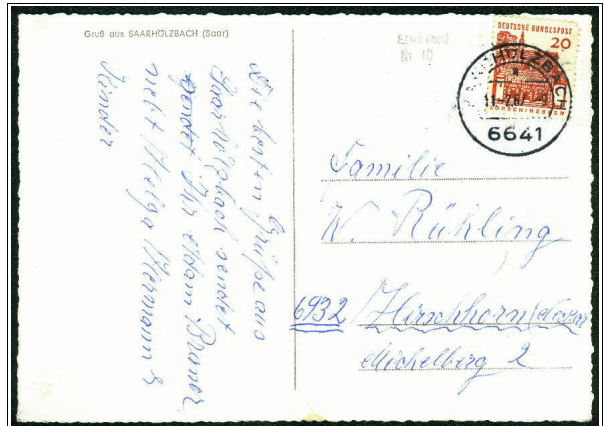 Gruß aus SAARHÖLZBACH (Saar)
Die besten Grüße aus
Saarhölzbach sendet
Ihr Adam
nebst Helga Hermann &
Kinder
DEUTSCHE BUNDESPOST
20
LORSCH/HESSEN
SAARHÖLZBACH
6641
Familie
W. Rühling
6932 Hirschhorn/Neckar
Michelberg 2